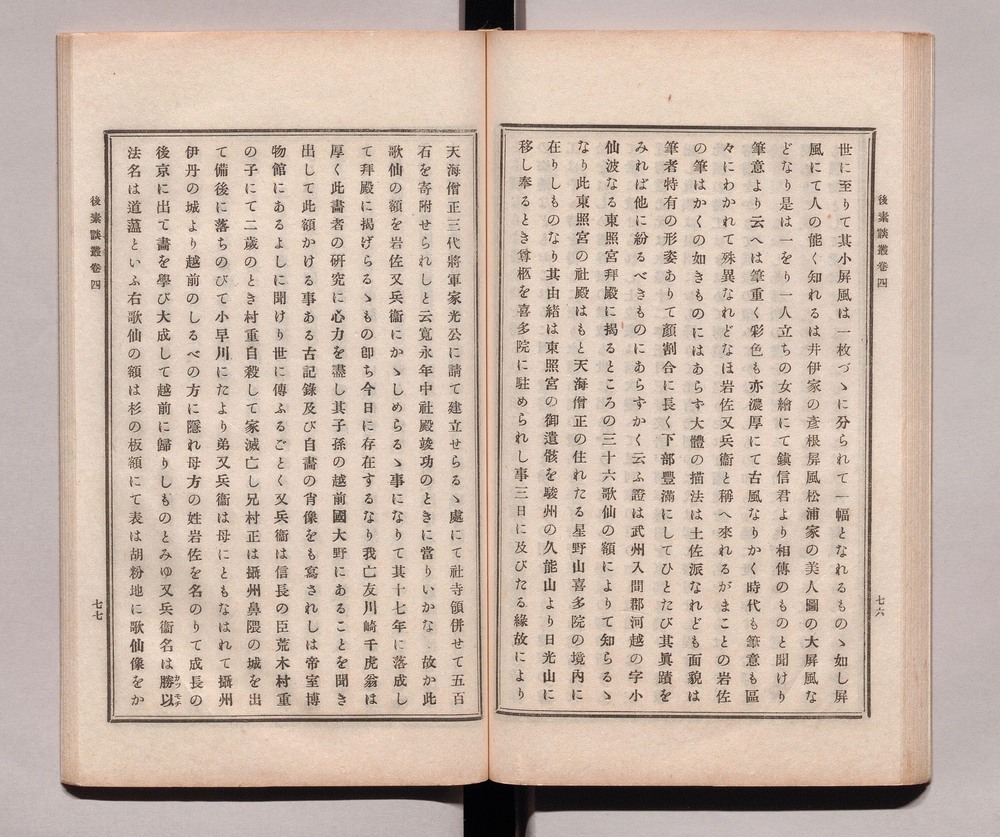 後素談叢卷四
七六
世に至りて其小屏風は一枚づゝに分られて一幅となれるものゝ如し屏
風にて人の能く知れるは井伊家の彥根屏風松浦家の美人圖の大屏風な
どなり是は一をり一人立ちの女繪にて鎭信君より相傳のものと聞けり
筆意より云へは筆重く彩色も亦濃厚にて古風なりかく時代も筆意も區
々にわかれて殊異なれどなほ岩佐又兵衞と稱へ來れるがまことの岩佐
の筆はかくの如きものにはあらず大體の描法は土佐派なれども面貌は
筆者特有の形姿ありて顏割合に長く下部豐滿にしてひとたび其眞蹟を
みれば他に紛るべきものにあらすかく云ふ證は武州入間郡河越の字小
仙波なる東照宮拜殿に揭るところの三十六歌仙の額によりて知らるゝ
なり此東照宮の社殿はもと天海僧正の住れたる星野山喜多院の境內に
在りしものなり其由緖は東照宮の御遺骸を駿州の久能山より日光山に
移し奉るとき尊柩を喜多院に駐められし事三日に及びたる緣故により
天海僧正三代將軍家光公に請て建立せらるゝ處にて社寺領併せて五百
石を寄附せられしと云寬永年中社殿竣功のときに當りいかな故か此
歌仙の額を岩佐又兵衞にかゝしめらるゝ事になりて其十七年に落成し
て拜殿に揭げらるゝもの卽ち今日に存在するなり我亡友川崎千虎翁は
厚く此畫者の硏究に心力を盡し其子孫の越前國大野にあることを聞き
出して此額かける事ある古記錄及び自畫の肖像をも寫されしは帝室博
物館にあるよしに聞けり世に傳ふるごとく又兵衞は信長の臣荒木村重
の子にて二歲のとき村重自殺して家滅亡し兄村正は攝州鼻隈の城を出
て備後に落ちのびて小早川にたより弟又兵衞は母にともなはれて攝州
伊丹の城より越前のしるべの方に隱れ母方の姓岩佐を名のりて成長の
後京に出て畫を學び大成して越前に歸りしものとみゆ又兵衞名は勝以
カツモチ
法名は道薀といふ右歌仙の額は杉の板額にて表は胡粉地に歌仙像をか
後素談叢卷四
七七